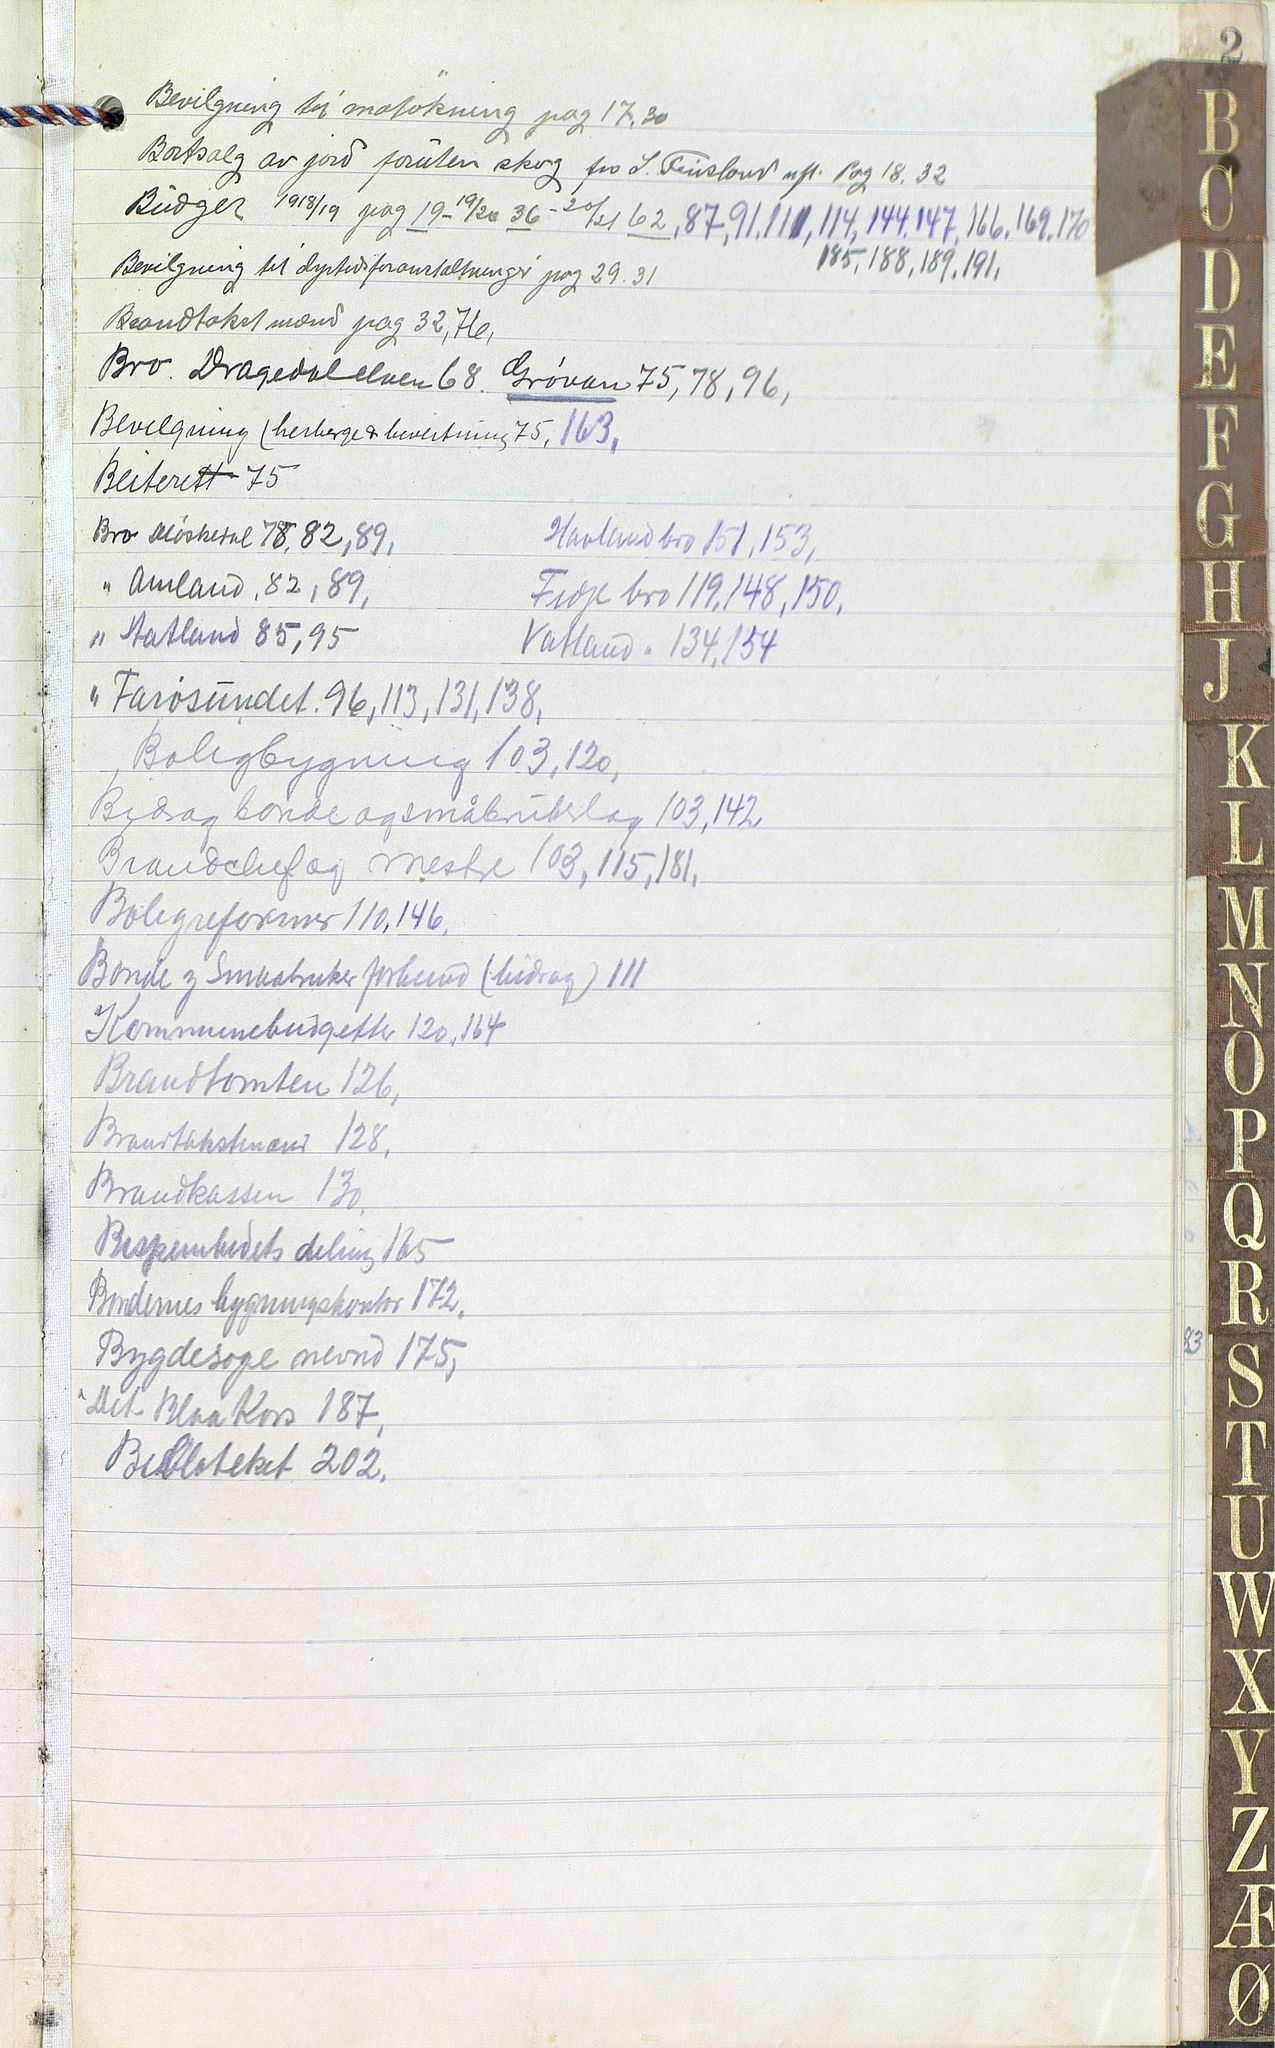 2
Bevilgning til matökning pag 17.30
Bortsalg av jord foruten skog fra S. Finsland nfl. Pag 18. 32
Budget 1918/19 pag 19 - 19/20 36 - 20/21 62, 87, 91, 111, 114, 144, 147, 166, 169, 170
185, 188, 189, 191,
Bevilgning til dyrtidsforanstaltninger pag 29. 31
Brandtakst mænd pag 32, 76,
Bro. Dragedalelven 68. Grövan 75, 78, 96,
Bevilgning (herberge & bevertning 75, 163,
Beiterett 75
Bro 78, 82, 89,
Havland bro 151, 153,
" Amland. 82, 89,
Fidje bro 119, 148, 150,
" Aatland 85, 95
Vatland " 134, 154
" Farösundet. 96, 113, 131, 138,
Boligbygning 103, 120,
Bidrag bonde og småbrukslag 103, 142
Brandchef og mestre 103, 115, 181,
Boligreformer 110, 146,
Bonde & Smaabruker forbund (bidrag) 111
Kommunebudgetter 120, 164
Brandtomten 126,
Brandtakstmænd 128,
Brandkassen 130,
Bispembedets deling 165
Bøndernes bygningskontor 172,
Bygdesoge nevnd 175,
" Det Blaa Kors 187,
Biblioteket 202,
83
B
C
D
E
F
G
H
J
K
L
M
N
O
P
Q
R
S
T
U
W
X
Y
Z
Æ
Ø